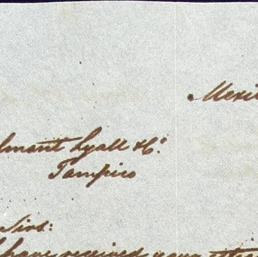 Mexi
lmont Lyall & Co.
Tampico
Sirs:
have received your